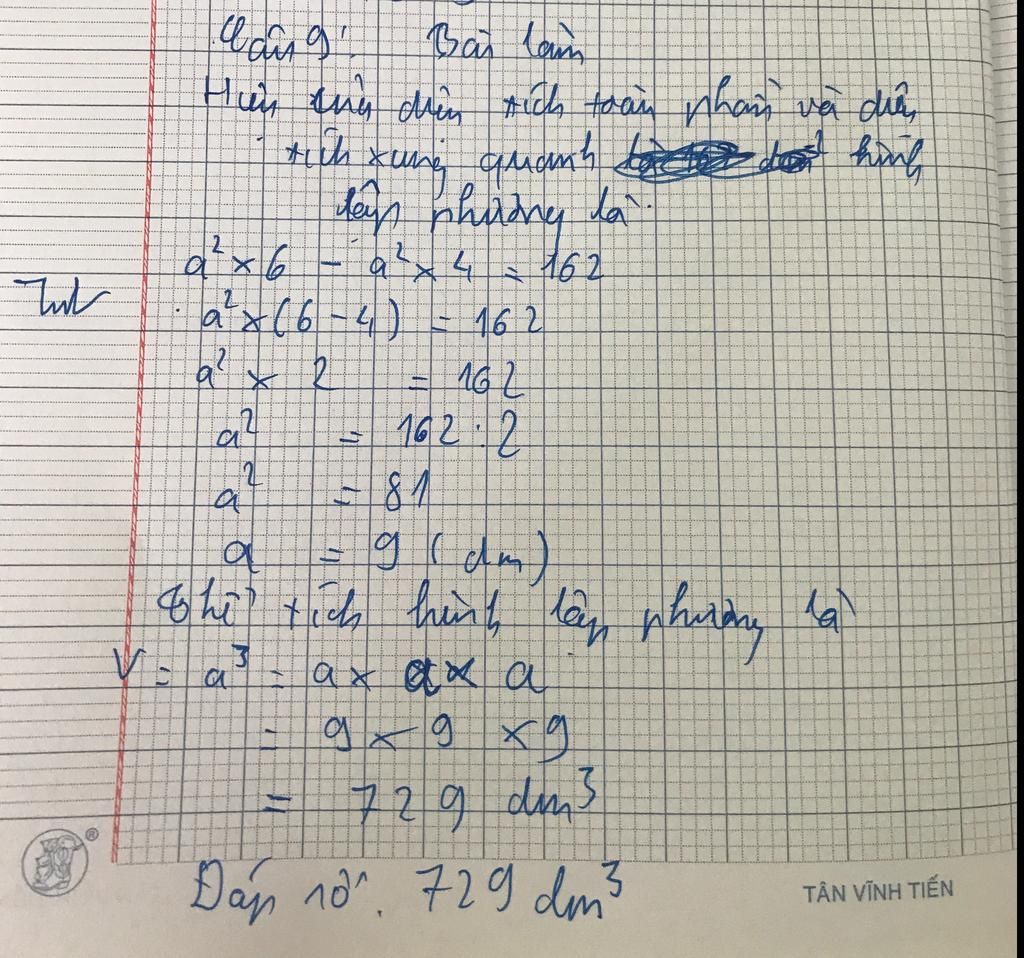 Câu 9: Bài làm
Hiệu của diện tích toàn phần và diện
tích xung quanh hình
lập phương là:
a² × 6 - a² × 4 = 162
a² × (6 - 4) = 162
a² × 2 = 162
a² = 162 : 2
a² = 81
a = 9 (dm)
Thể tích hình lập phương là
V = a³ = a × a × a
= 9 × 9 × 9
= 729 dm³
Đáp số: 729 dm³
®
TÂN VĨNH TIẾN